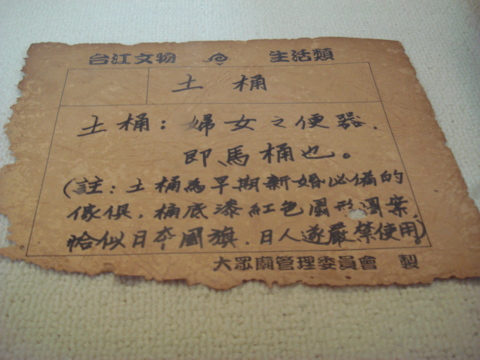 台江文物 生活類
土桶
土桶：婦女之便器．
即馬桶也。
(註：土桶為早期新婚必備的
傢俱．桶底漆紅色圓形圖案
恰似日本國旗．日人遂嚴禁使用)
大眾廟管理委員會 製